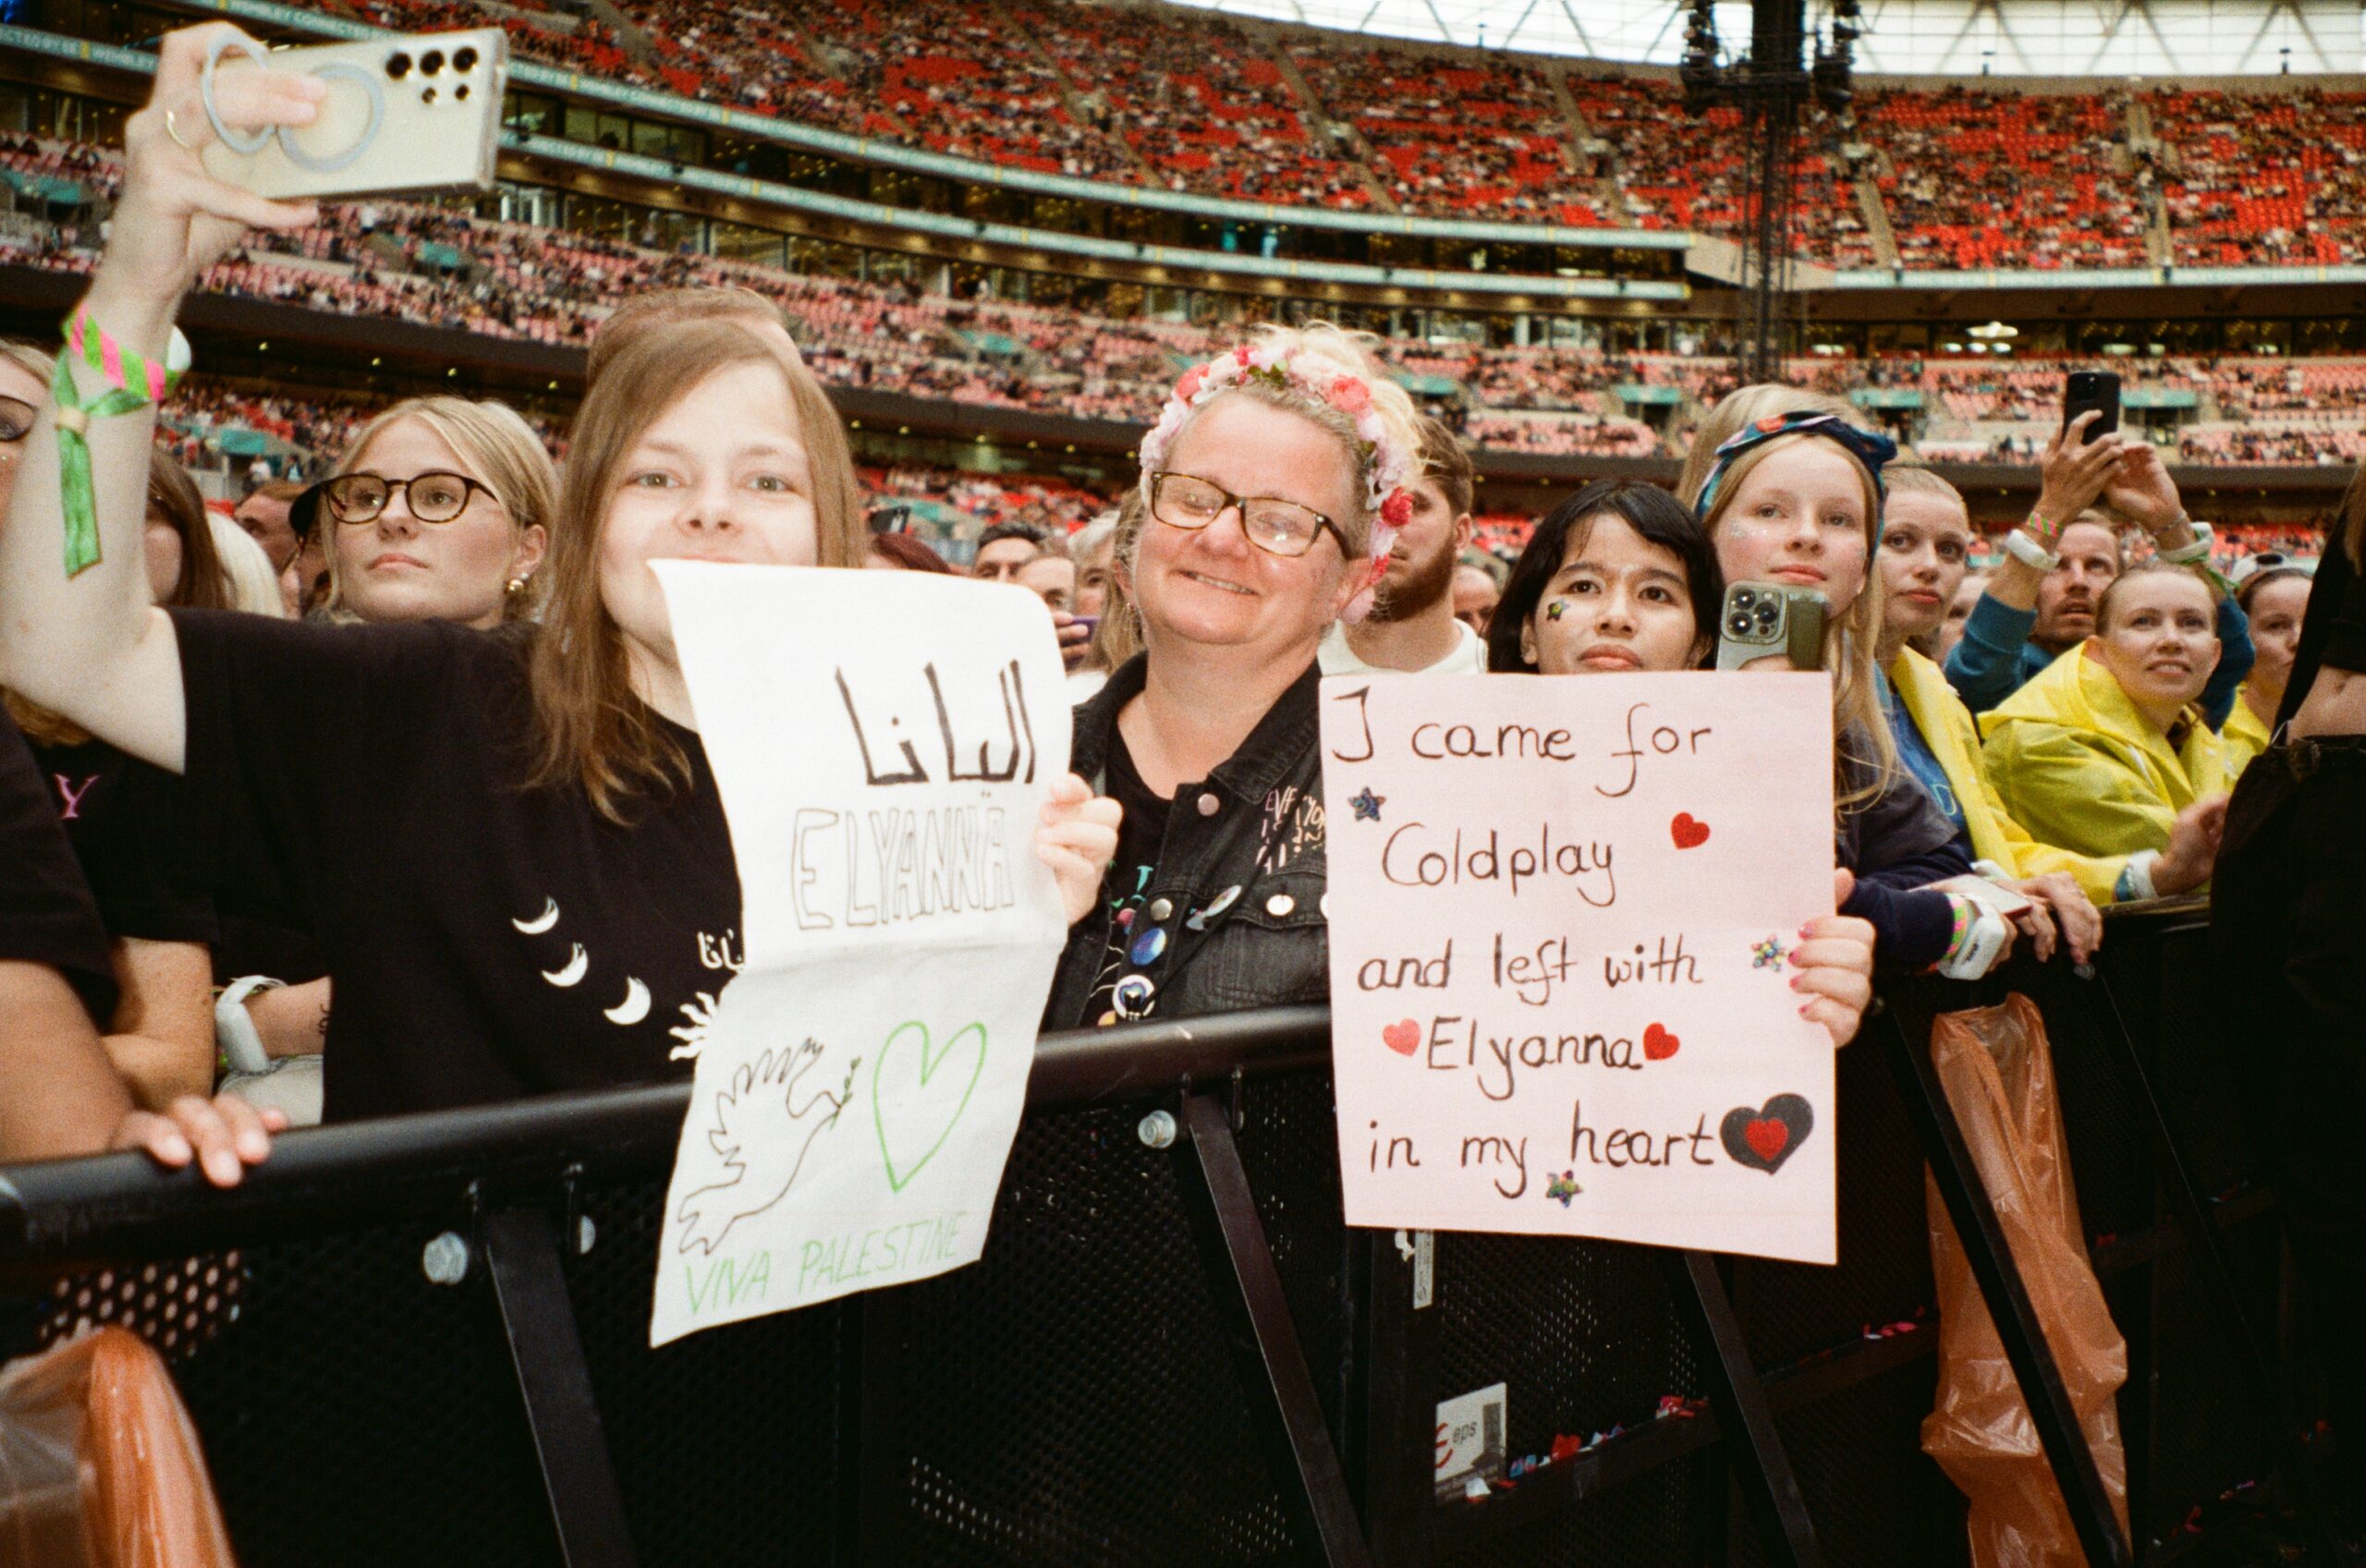 اليانا
ELYANNA
VIVA PALESTINE
I came for
Coldplay
and left with
Elyanna
in my heart
Y
eps